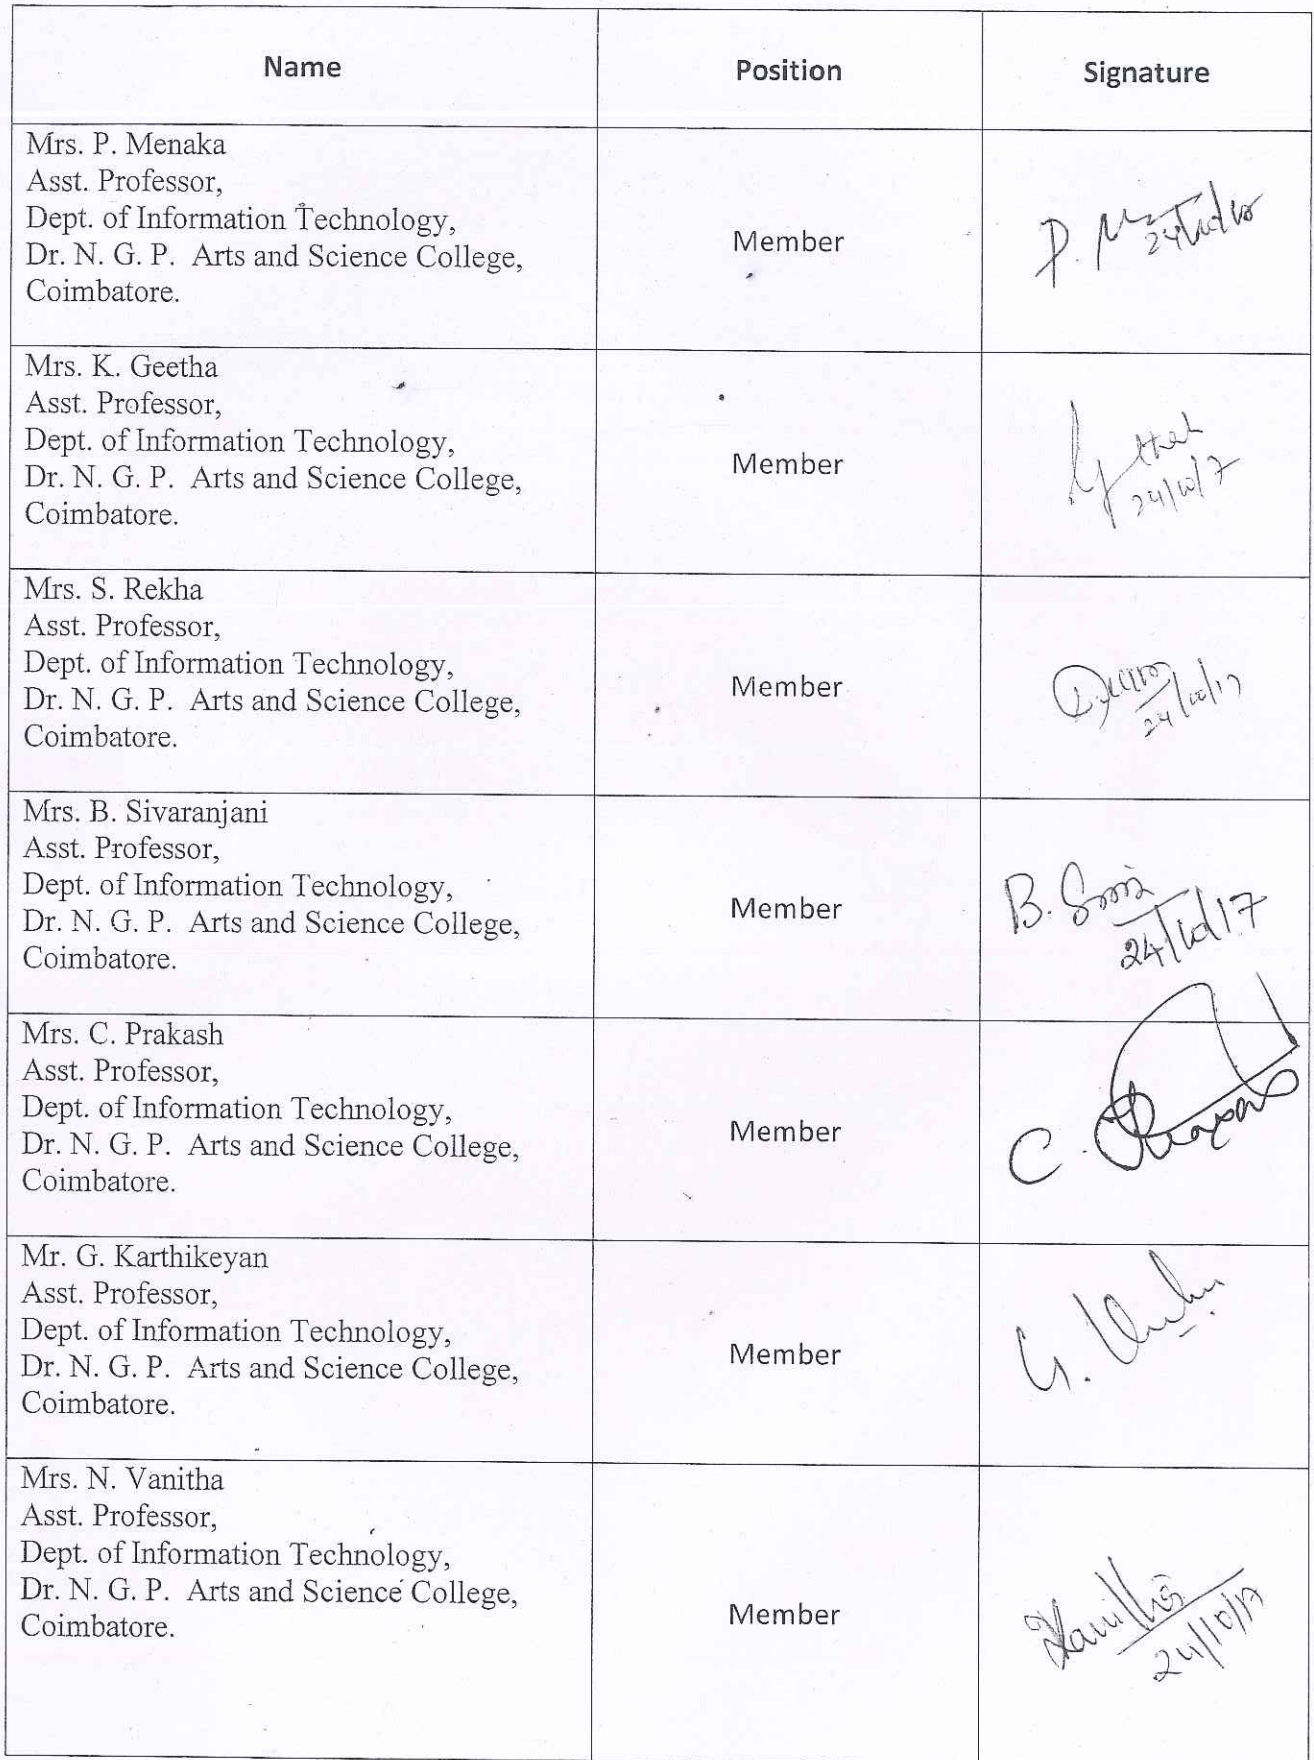 Name Position Signature
Mrs. P. Menaka
Asst. Professor,
Dept. of Information Technology,
Dr. N. G. P. Arts and Science College,
Coimbatore.
Member
P.
Mrs. K. Geetha
Asst. Professor,
Dept. of Information Technology,
Dr. N. G. P. Arts and Science College,
Coimbatore.
Member
24/10/7
Mrs. S. Rekha
Asst. Professor,
Dept. of Information Technology,
Dr. N. G. P. Arts and Science College,
Coimbatore.
Member
24/10/17
Mrs. B. Sivaranjani
Asst. Professor,
Dept. of Information Technology,
Dr. N. G. P. Arts and Science College,
Coimbatore.
Member
B.
24/10/17
Mrs. C. Prakash
Asst. Professor,
Dept. of Information Technology,
Dr. N. G. P. Arts and Science College,
Coimbatore.
Member
C.
Mr. G. Karthikeyan
Asst. Professor,
Dept. of Information Technology,
Dr. N. G. P. Arts and Science College,
Coimbatore.
Member
G.
Mrs. N. Vanitha
Asst. Professor,
Dept. of Information Technology,
Dr. N. G. P. Arts and Science College,
Coimbatore.
Member
24/10/17